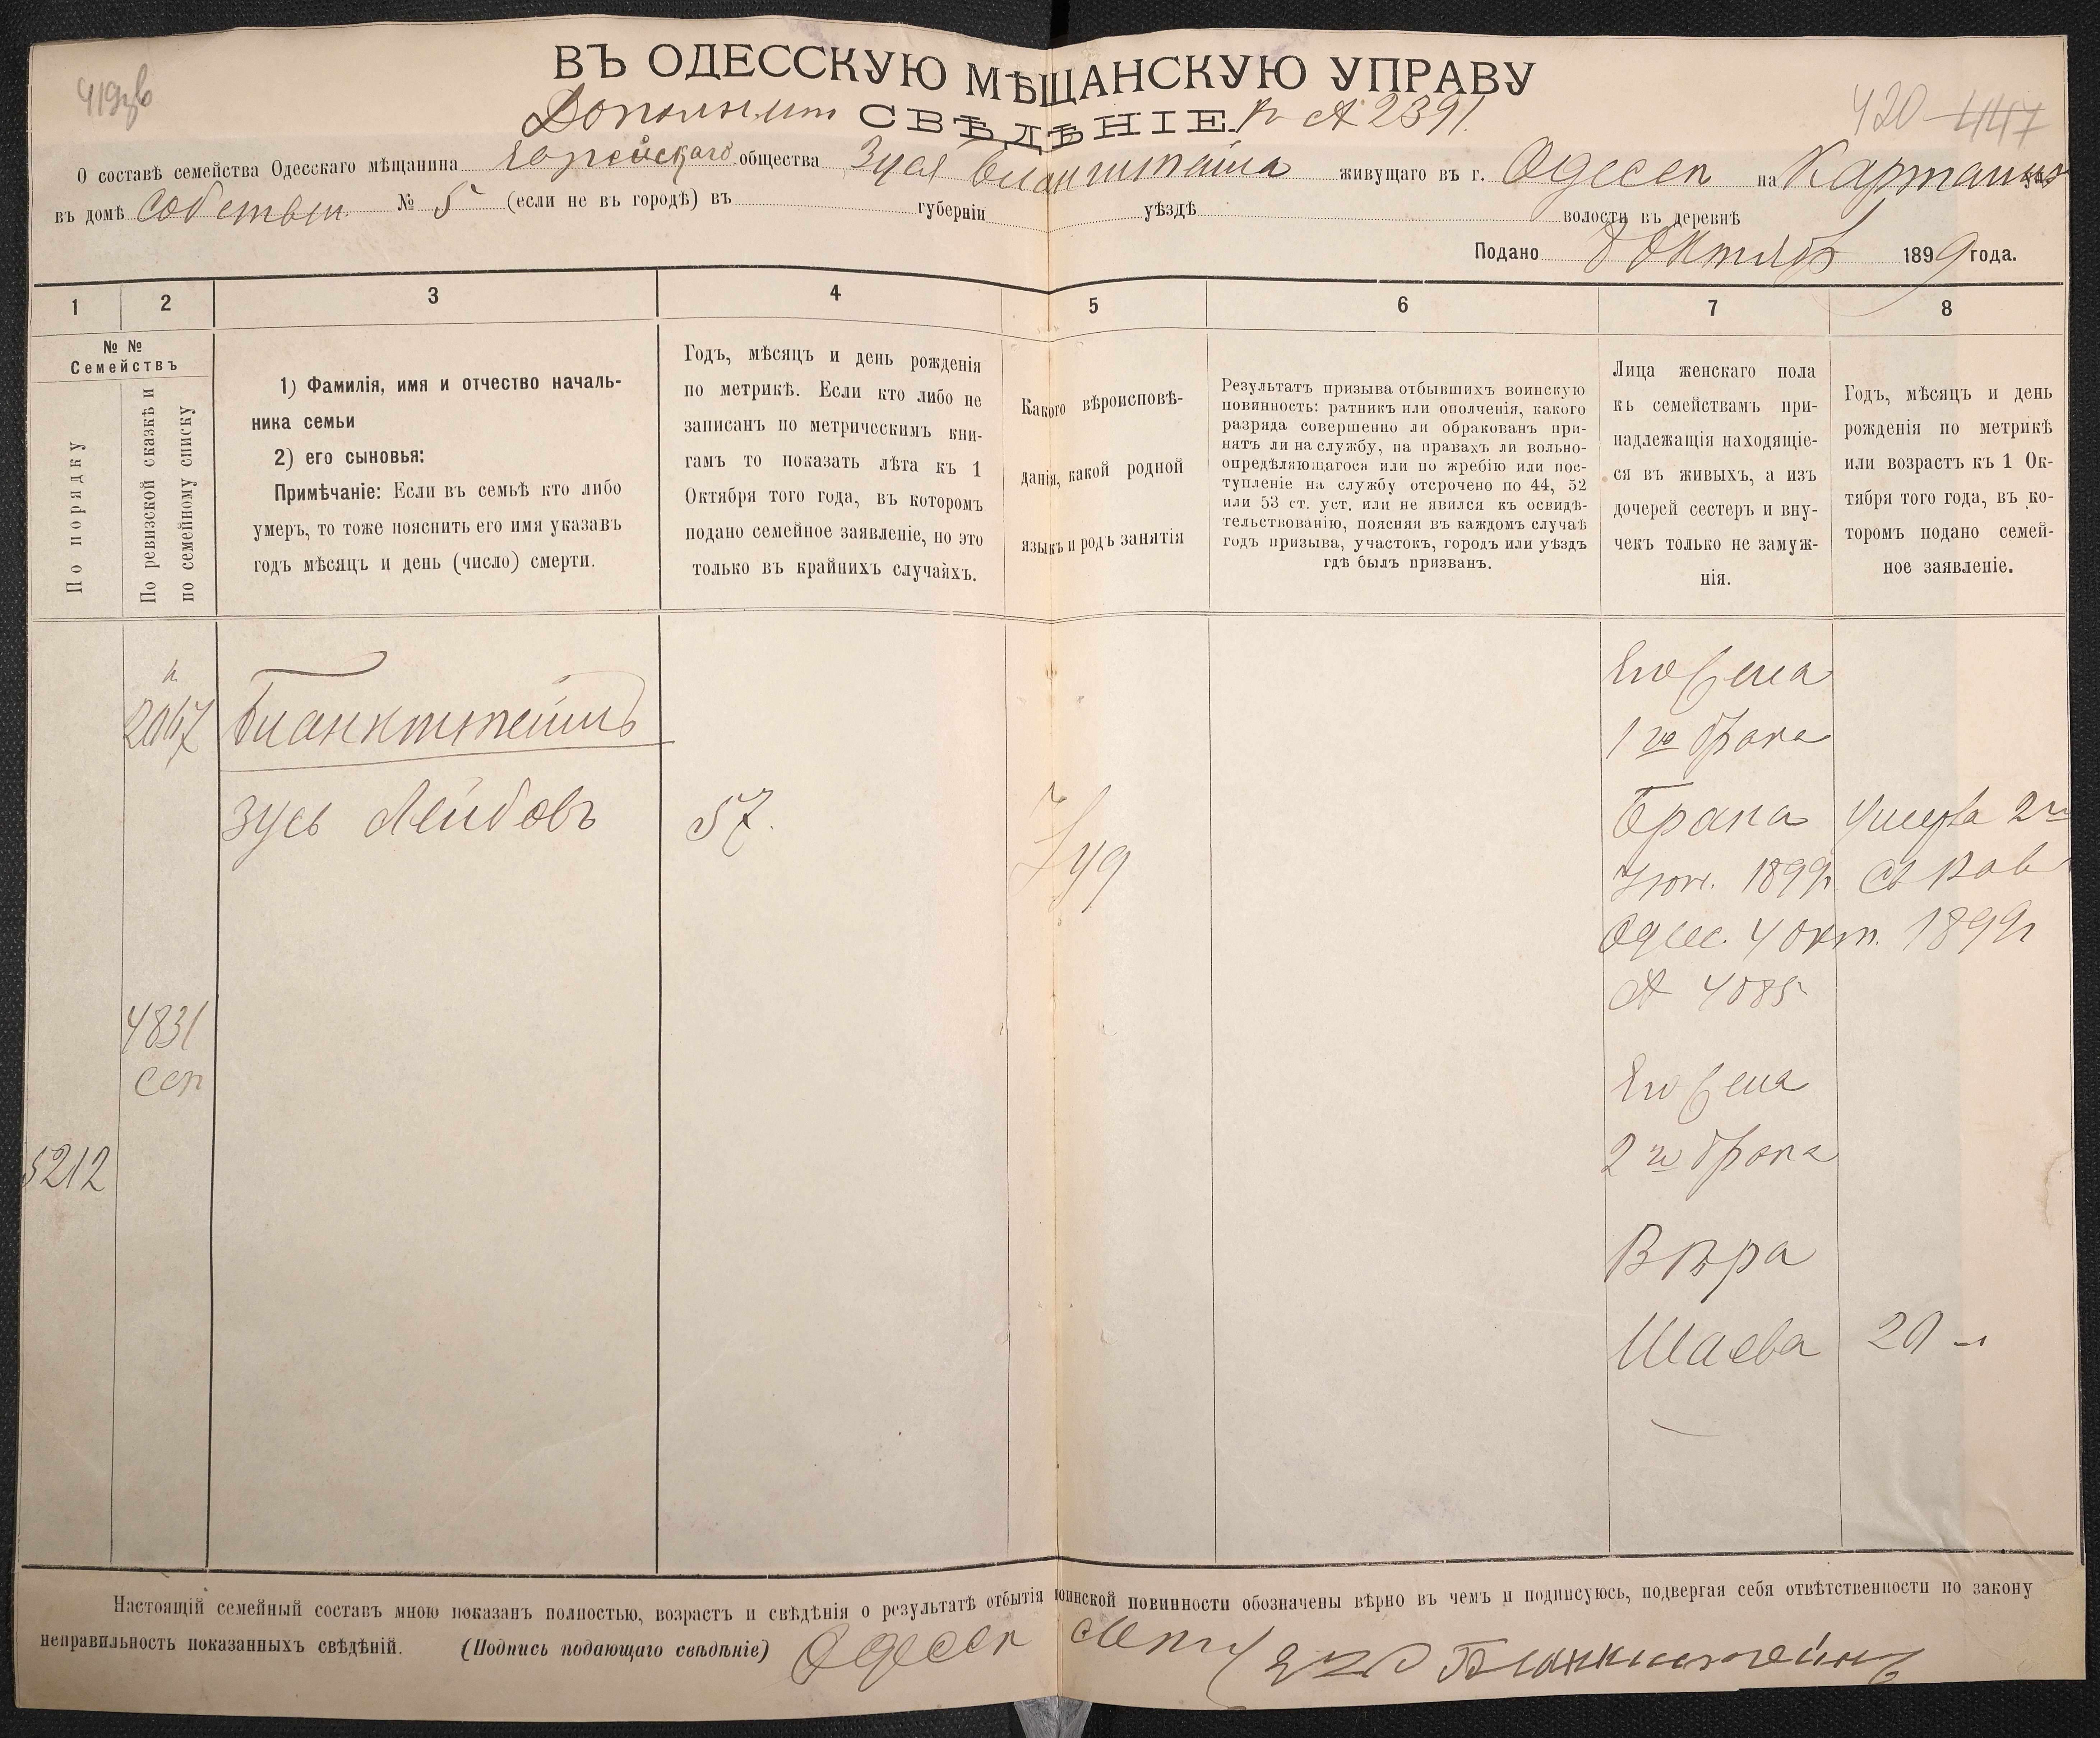 419зв
420 447
ВЪ ОДЕССКУЮ МѢЩАНСКУЮ УПРАВУ
Дополнит СВѢДѢНІЕ. к № 2391.
О составѣ семейства Одесскаго мѣщанина Еврейскаго общества Зуся Бланкштейна живущаго въ г. Одессѣ на
въ домѣ Собствен. № 5 (если не въ городѣ) въ губерніи уѣздѣ волости въ деревнѣ
Подано 8 Октября 1899 года.
1 2 3 4 5 6 7 8
№ №
Семействъ
По порядку
По ревизской сказкѣ и
по семейному списку
1) Фамилія, имя и отчество началь-
ника семьи
2) его сыновья:
Примѣчаніе: Если въ семьѣ кто либо
умеръ, то тоже пояснить его имя указавъ
годъ мѣсяцъ и день (число) смерти.
Годъ, мѣсяцъ и день рожденія
по метрикѣ. Если кто либо не
записанъ по метрическимъ кни-
гамъ то показать лѣта къ 1
Октября того года, въ которомъ
подано семейное заявленіе, но это
только въ крайнихъ случаяхъ.
Какого вѣроисповѣ-
данія, какой родной
языкъ и родъ занятія
Результатъ призыва отбывшихъ воинскую
повинность: ратникъ или ополченія, какого
разряда совершенно ли обракованъ при-
нятъ ли на службу, на правахъ ли вольно-
опредѣляющагося или по жребію или пос-
тупленіе на службу отсрочено по 44, 52
или 53 ст. уст. или не явился къ освидѣ-
тельствованію, поясняя въ каждомъ случаѣ
годъ призыва, участокъ, городъ или уѣздъ
гдѣ былъ призванъ.
Лица женскаго пола
къ семействамъ при-
надлежащія находящіе-
ся въ живыхъ, а изъ
дочерей сестеръ и вну-
чекъ только не замуж-
нія.
Годъ, мѣсяцъ и день
рожденія по метрикѣ
или возрастъ къ 1 Ок-
тября того года, въ ко-
торомъ подано семей-
ное заявленіе.
Бланкштейнъ
Зусь Лейбовъ 57. Іуд
Его жена
1го брака
Умерла 2го
1899г. Св Рав
Одес. 4 окт. 1899г
№ 4085
4831
сек
5212
Его жена
2го брака
Вѣра
Шаева 20 л
Настоящій семейный составъ мною показанъ полностью, возрастъ и свѣдѣнія о результатѣ отбытія воинской повинности обозначены вѣрно въ чемъ и подписуюсь, подвергая себя отвѣтственности по закону
неправильность показанныхъ свѣдѣній. (Подпись подающаго свѣдѣніе) Одесск Мещ Бланкштейнъ